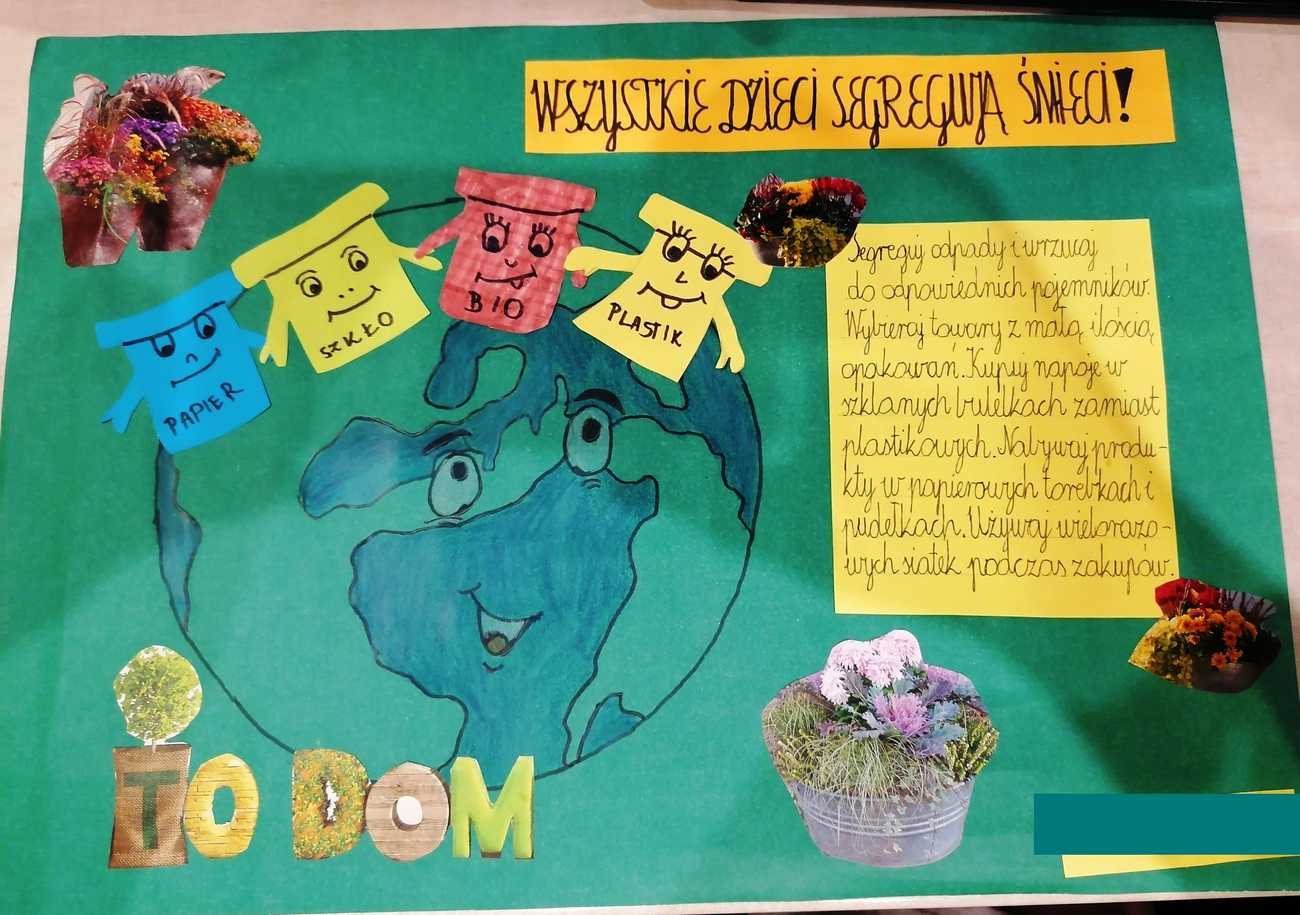 WSZYSTKIE DZIECI SEGREGUJĄ ŚMIECI!
PAPIER
SZKŁO
BIO
PLASTIK
Segreguj odpady i wrzucaj
do odpowiednich pojemników.
Wybieraj towary z małą ilością
opakowań. Kupuj napoje w
szklanych butelkach zamiast
plastikowych. Nabywaj produ-
kty w papierowych torebkach i
pudełkach. Używaj wielorazo-
wych siatek podczas zakupów.
TO DOM